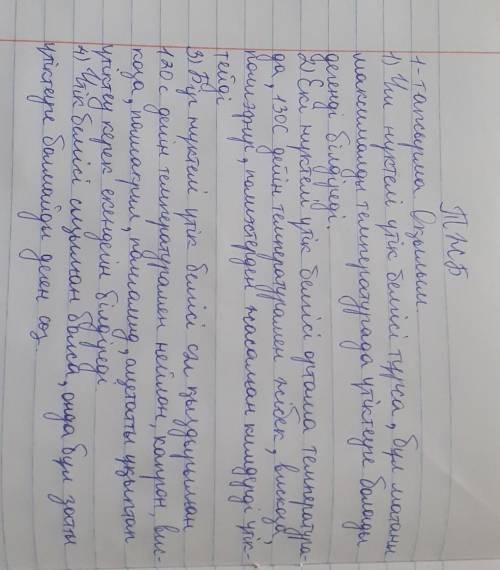 ТЖБ
1-тапсырма Оқылым
1) Үш нүктелі үтік белгісі тұрса, бұл матаны
максималды температурада үтіктеуге болады
дегенді білдіреді.
2) Екі нүктелі үтік белгісі орташа температура-
да, 130С дейін температурамен жібек, вискоза,
полиэфир, полиэстерден жасалған киімдерді үтік-
тейді
3) Бір нүктелі үтік белгісі сәл қыздырылған
130 с дейін температурамен нейлон, капрон, вис-
коза, полиакрил, полиамид, ацетатты ұқыптап
үтіктеу керек екендігін білдіреді
4) Үтік белгісі сызылған болса, онда бұл затты
үтіктеуге болмайды деген сөз.